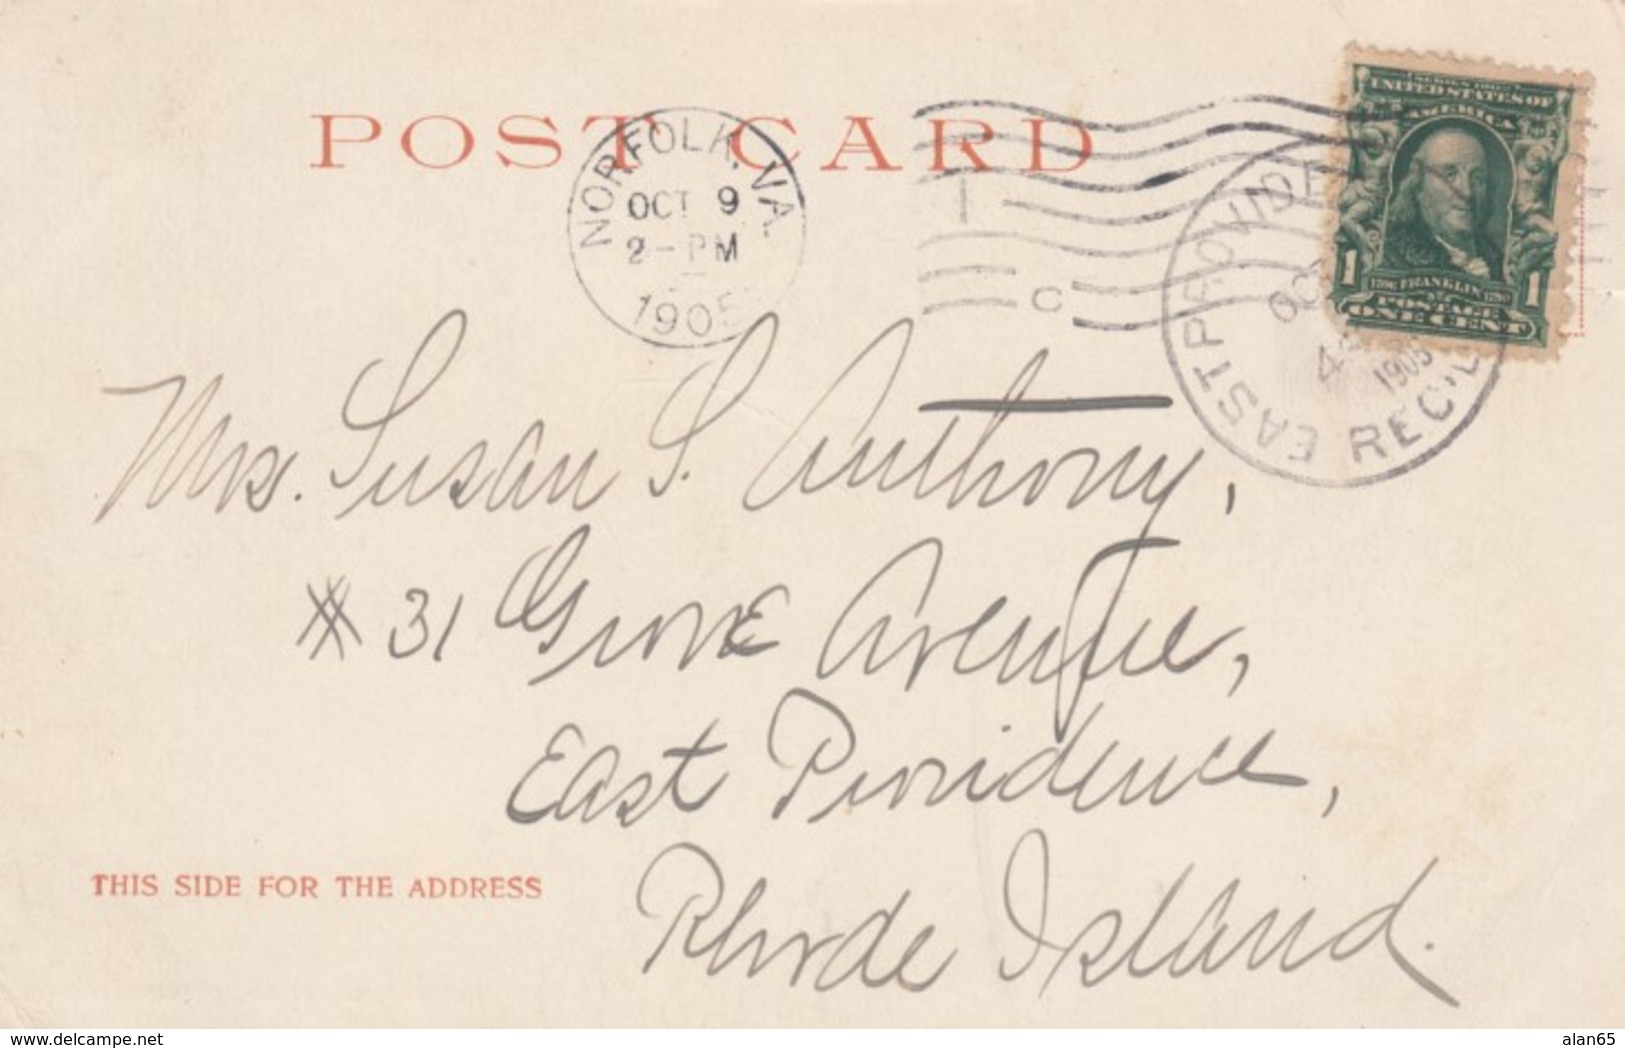 POST CARD
NORFOLK, VA.
OCT 9
2 - PM
1905
C
SERIES 1902
UNITED STATES OF
AMERICA
1 1706 FRANKLIN 1790 1
POSTAGE
ONE CENT
EAST PROVIDE
OC
4
1905
REC'D
Mrs. Susan S. Anthony,
# 31 Grove Avenue,
East Providence,
Rhode Island.
THIS SIDE FOR THE ADDRESS
www.delcampe.net
alan65